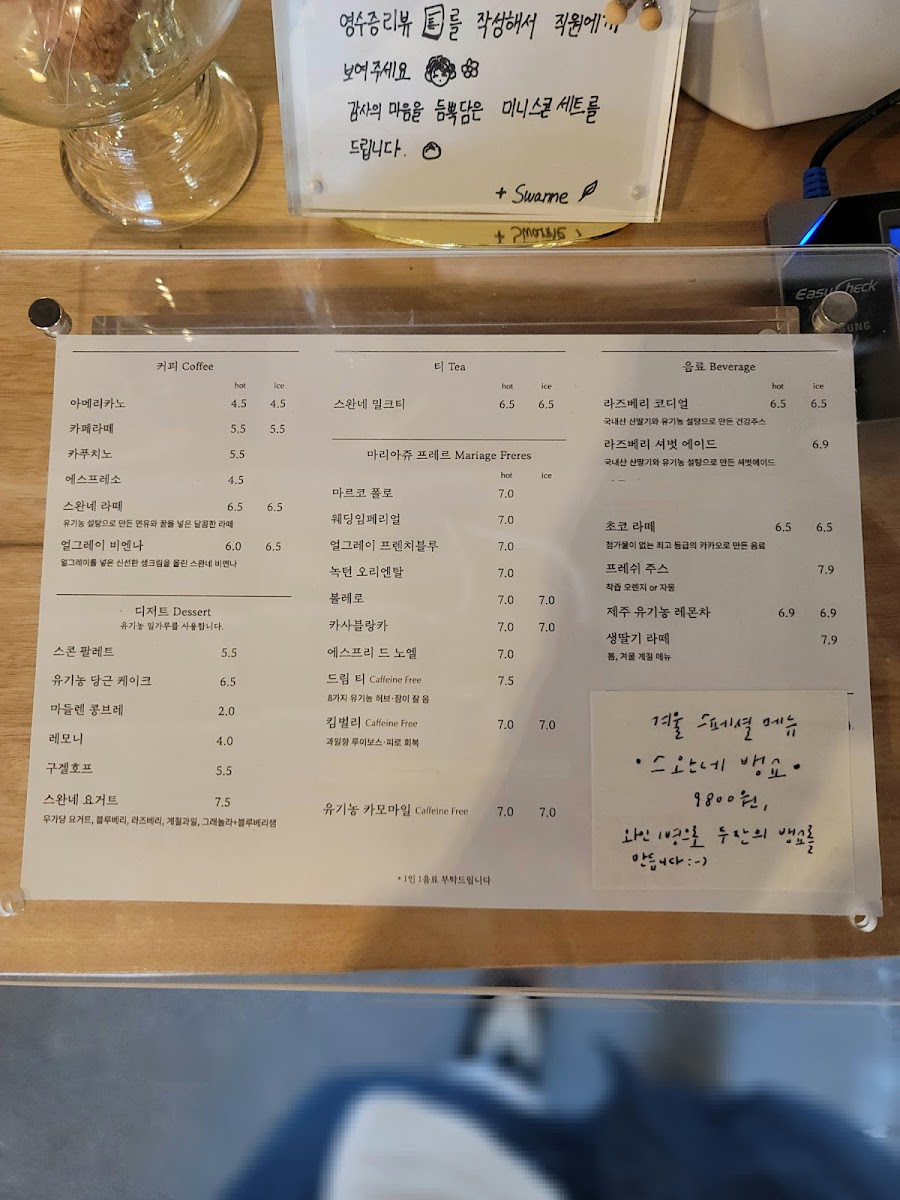 영수증리뷰 를 작성해서 직원에게
보여주세요
감사의 마음을 듬뿍담은 미니스콘 세트를
드립니다.
+ Swanne
+ Swanne
EasyCheck
커피 Coffee
hot ice
아메리카노 4.5 4.5
카페라떼 5.5 5.5
카푸치노 5.5
에스프레소 4.5
스완네 라떼 6.5 6.5
유기농 설탕으로 만든 연유와 꿀을 넣은 달콤한 라떼
얼그레이 비엔나 6.0 6.5
얼그레이를 넣은 신선한 생크림을 올린 스완네 비엔나
디저트 Dessert
유기농 밀가루를 사용합니다.
스콘 팔레트 5.5
유기농 당근 케이크 6.5
마들렌 콩브레 2.0
레모니 4.0
구겔호프 5.5
스완네 요거트 7.5
무가당 요거트, 블루베리, 라즈베리, 계절과일, 그래놀라+블루베리잼
티 Tea
hot ice
스완네 밀크티 6.5 6.5
마리아쥬 프레르 Mariage Freres
hot ice
마르코 폴로 7.0
웨딩임페리얼 7.0
얼그레이 프렌치블루 7.0
녹턴 오리엔탈 7.0
볼레로 7.0 7.0
카사블랑카 7.0 7.0
에스프리 드 노엘 7.0
드림 티 Caffeine Free 7.5
8가지 유기농 허브·잠이 잘 옴
킴벌리 Caffeine Free 7.0 7.0
과일향 루이보스·피로 회복
유기농 카모마일 Caffeine Free 7.0 7.0
* 1인 1음료 부탁드립니다
음료 Beverage
hot ice
라즈베리 코디얼 6.5 6.5
국내산 산딸기와 유기농 설탕으로 만든 건강주스
라즈베리 셔벗 에이드 6.9
국내산 산딸기와 유기농 설탕으로 만든 셔벗에이드
초코 라떼 6.5 6.5
첨가물이 없는 최고 등급의 카카오로 만든 음료
프레쉬 주스 7.9
착즙 오렌지 or 자몽
제주 유기농 레몬차 6.9 6.9
생딸기 라떼 7.9
봄, 겨울 계절 메뉴
겨울 스페셜 메뉴
• 스완네 뱅쇼 •
9800원,
와인 1병으로 두 잔의 뱅쇼를
만듭니다 :-)